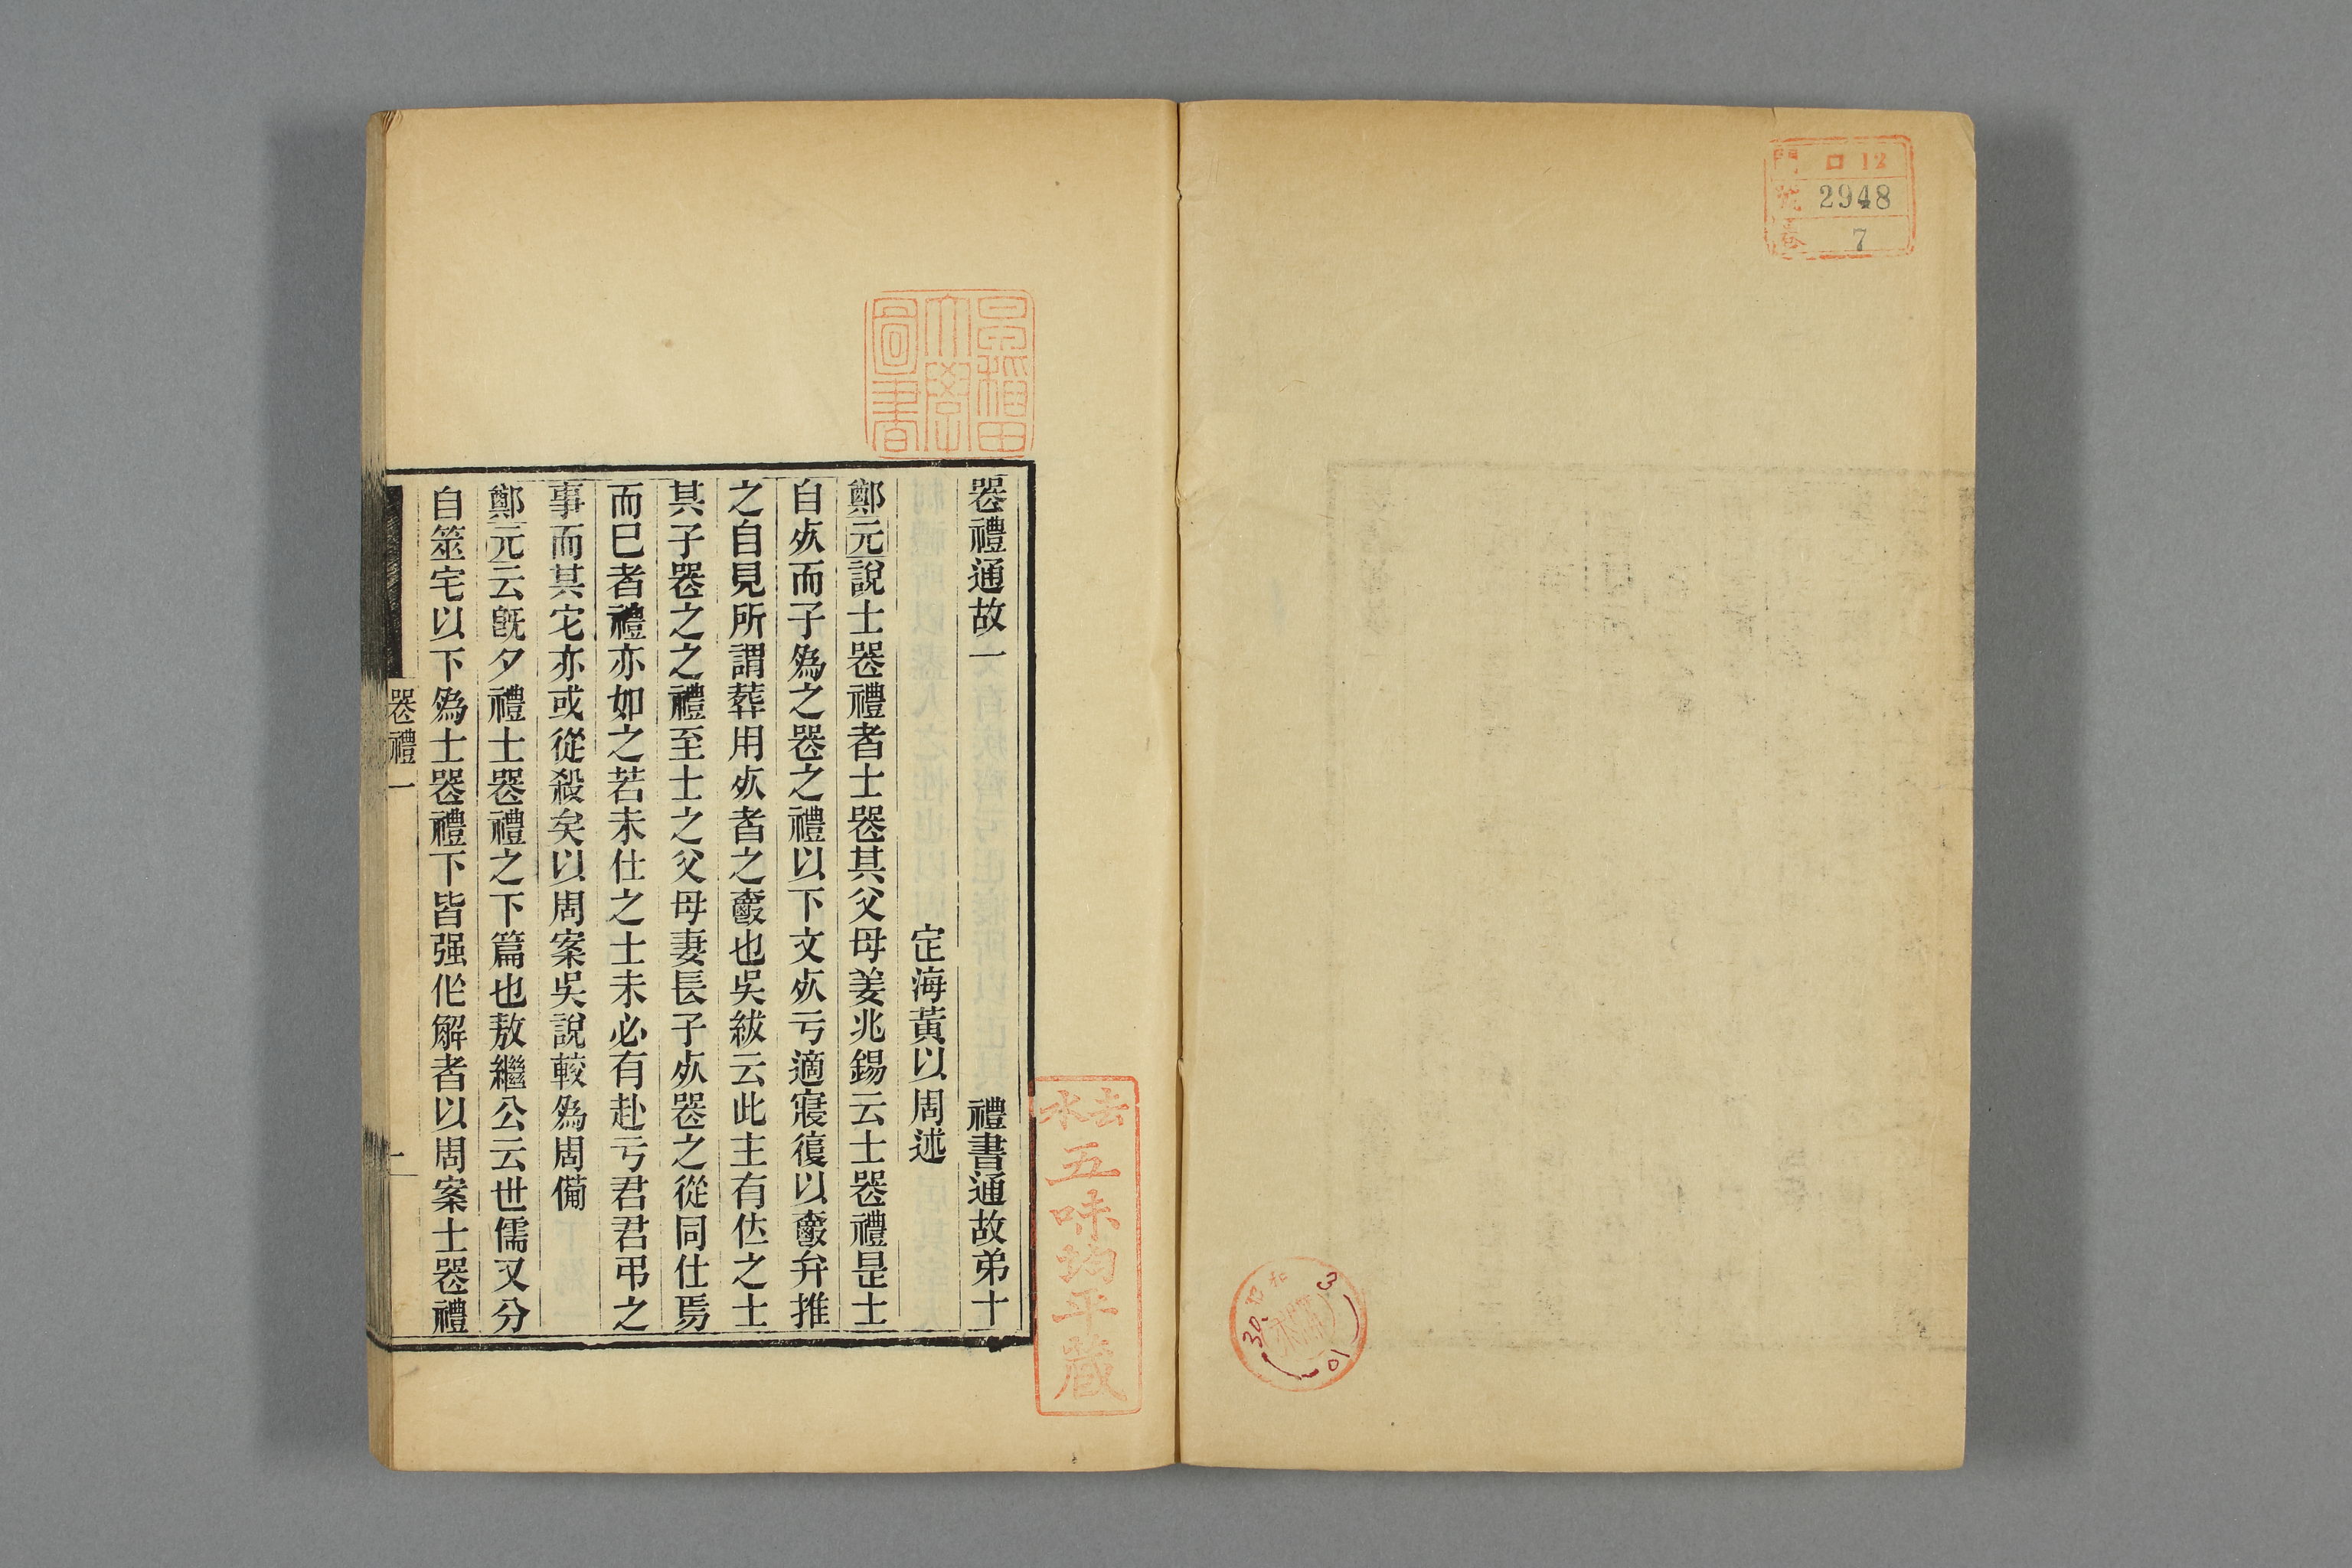 門 口12
號 2948
卷 7
早稻田
大學
圖書
去水
五味均平藏
喪禮通故一 禮書通故弟十
定海黃以周述
鄭元說士喪禮者士喪其父母姜兆錫云士喪禮昰士
自𣦸而子爲之喪之禮以下文𣦸亏適寢復以爵弁推
之自見所謂葬用𣦸者之爵也吳紱云此主有仕之士
其子喪之之禮至士之父母妻長子𣦸喪之從同仕焉
而巳者禮亦如之若未仕之士未必有赴亏君君弔之
事而其它亦或從殺矣以周案吳說較爲周備
鄭元云旣夕禮士喪禮之下篇也敖繼公云世儒又分
自筮宅以下爲士喪禮下皆强作解者以周案士喪禮
喪禮一
一
30. 3. 10